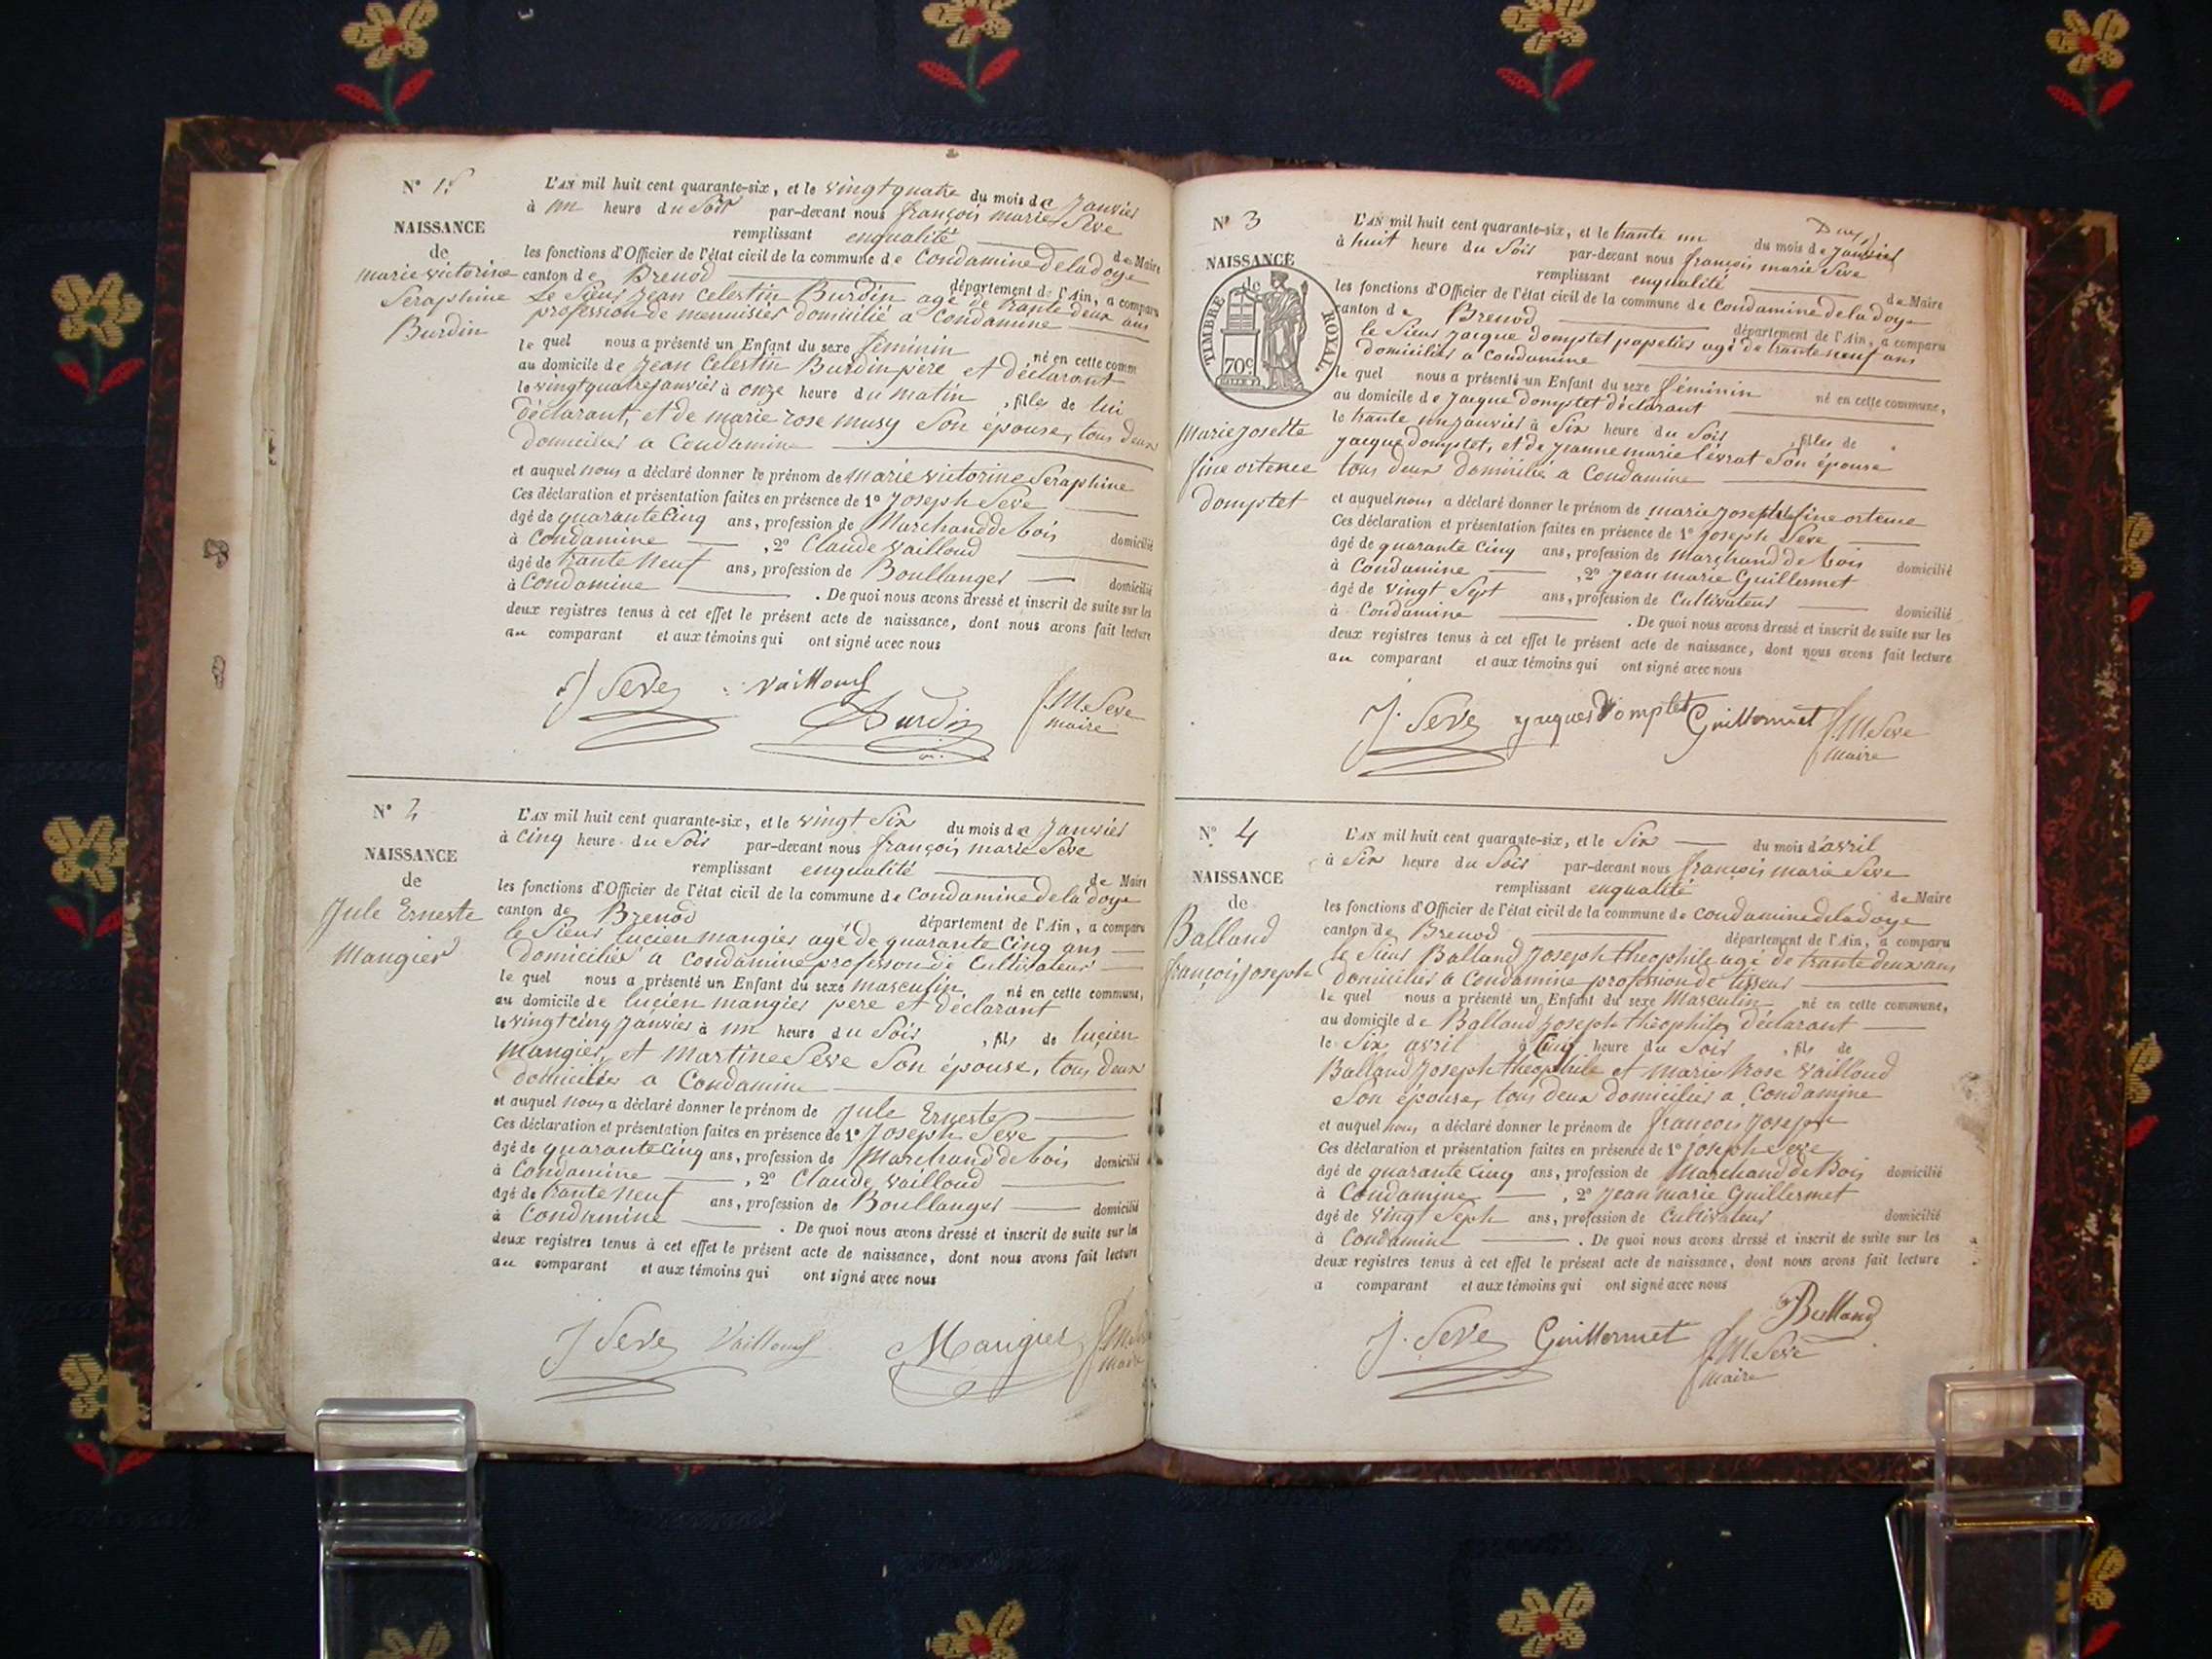 N° 1
L'AN mil huit cent quarante-six, et le vingt quatre du mois de Janvier
à un heure du Soir par-devant nous françois marie Seve
remplissant enqualité de Maire
NAISSANCE
de
marie victorine
Seraphine
Burdin
les fonctions d'Officier de l'état civil de la commune de Condamine de la doye
canton de Brenod département de l'Ain, a comparu
Le Sieur Jean Celestin Burdin agé de trante deux ans
profession de menuisier domicilié a Condamine
le quel nous a présenté un Enfant du sexe féminin né en cette comm
au domicile de Jean Celestin Burdin père et déclarant
le vingt quatre janvier à onze heure du matin , filles de lui
déclarant, et de marie rose musy Son épouse, tous deux
domicilies a Condamine
et auquel nous a déclaré donner le prénom de marie victorine Seraphine
Ces déclaration et présentation faites en présence de 1° Joseph Seve
âgé de quarante Cinq ans, profession de Marchand de bois domicilié
à Condamine , 2° Claude vailloud
âgé de trante neuf ans, profession de Boullanger domicilié
à Condamine . De quoi nous avons dressé et inscrit de suite sur les
deux registres tenus à cet effet le présent acte de naissance, dont nous avons fait lecture
au comparant et aux témoins qui ont signé avec nous
J Seve vailloud Burdin f.M. Seve
maire
N° 2
NAISSANCE
de
Jule Erneste
Mangier
L'AN mil huit cent quarante-six, et le vingt Six du mois de Janvier
à Cinq heure du Soir par-devant nous françois marie Seve
remplissant enqualité de Maire
les fonctions d'Officier de l'état civil de la commune de Condamine de la doye
canton de Brenod département de l'Ain, a comparu
le Sieur lucien mangier agé de quarante Cinq ans
domicilier a Condamine professon de Cultivateur
le quel nous a présenté un Enfant du sexe masculin né en cette commune,
au domicile de lucien mangier pere et déclarant
le vingt cinq janvier à un heure du Soir , fils de lucien
mangier, et Martine Seve Son épouse, tous deux
domicilies a Condamine
et auquel nous a déclaré donner le prénom de Jule Erneste
Ces déclaration et présentation faites en présence de 1° Joseph Seve
âgé de quarante Cinq ans, profession de Marchand de bois domicilié
à Condamine , 2° Claude vailloud
âgé de trante neuf ans, profession de Boullanger domicilié
à Condamine . De quoi nous avons dressé et inscrit de suite sur les
deux registres tenus à cet effet le présent acte de naissance, dont nous avons fait lecture
au comparant et aux témoins qui ont signé avec nous
J Seve Vailloud Mangier f.M. Seve
maire
N° 3
NAISSANCE
de
TIMBRE ROYAL
70c
Marie Josette
fine ortence
domptet
L'AN mil huit cent quarante-six, et le trante un du mois de Janvier
à huit heure du Soir par-devant nous françois marie Seve
remplissant enqualité de Maire
les fonctions d'Officier de l'état civil de la commune de Condamine de la doye
canton de Brenod département de l'Ain, a comparu
le Sieur jacque domptet papetier agé de trante neuf ans
domicilies a Condamine
le quel nous a présenté un Enfant du sexe féminin né en cette commune,
au domicile de jacque domptet déclarant
le trante un janvier à Six heure du Soir , filles de
jacque domptet, et de jeanne marie lévrat Son épouse
tous deux domicilié a Condamine
et auquel nous a déclaré donner le prénom de marie fine ortence
Ces déclaration et présentation faites en présence de 1° Joseph Seve
âgé de quarante Cinq ans, profession de marchand de bois domicilié
à Condamine , 2° Jean marie Guillermet
âgé de vingt Sept ans, profession de Cultivateur domicilié
à Condamine . De quoi nous avons dressé et inscrit de suite sur les
deux registres tenus à cet effet le présent acte de naissance, dont nous avons fait lecture
au comparant et aux témoins qui ont signé avec nous
J. Seve jacques domptet Guillermet f.M. Seve
maire
N° 4
NAISSANCE
de
Balland
françois joseph
L'AN mil huit cent quarante-six, et le Six du mois d'avril
à Six heure du Soir par-devant nous françois marie Seve
remplissant enqualité de Maire
les fonctions d'Officier de l'état civil de la commune de Condamine de la doye
canton de Brenod département de l'Ain, a comparu
le Sieur Balland Joseph théophile agé de trante deux ans
domicilier a Condamine profession de tisseur
le quel nous a présenté un Enfant du sexe Masculin né en cette commune,
au domicile de Balland joseph théophile déclarant
le Six avril à Cinq heure du Soir , fils de
Balland Joseph théophile et marie Rose vailloud
Son épouse, tous deux domicilier a Condamine
et auquel nous a déclaré donner le prénom de francois Joseph
Ces déclaration et présentation faites en présence de 1° joseph Seve
âgé de quarante Cinq ans, profession de Marchand de Bois domicilié
à Condamine , 2° Jean marie Guillermet
âgé de vingt Seph ans, profession de Cultivateur domicilié
à Condamine . De quoi nous avons dressé et inscrit de suite sur les
deux registres tenus à cet effet le présent acte de naissance, dont nous avons fait lecture
a comparant et aux témoins qui ont signé avec nous
J. Seve Guillermet Balland
f.M. Seve
maire